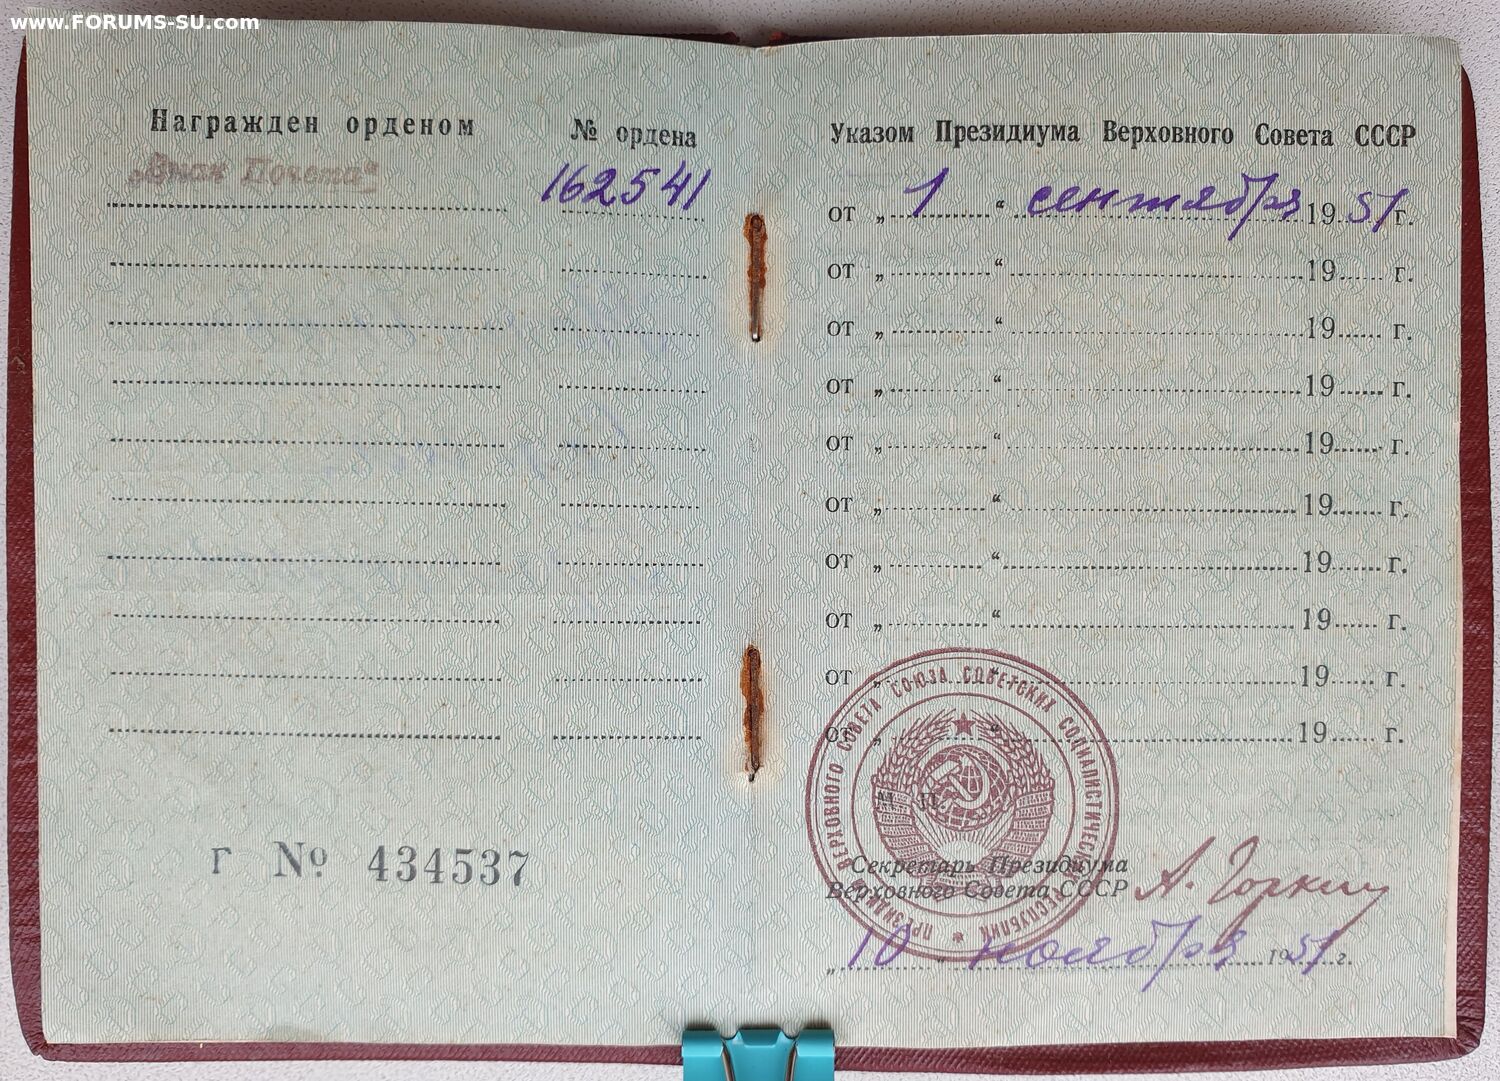 www.FORUMS-SU.com
Награжден орденом № ордена
„Знак Почета“ 162541
Г № 434537
Указом Президиума Верховного Совета СССР
от „ 1 “ сентября 1951 г.
от „ “ 19 г.
от „ “ 19 г.
от „ “ 19 г.
от „ “ 19 г.
от „ “ 19 г.
от „ “ 19 г.
от „ “ 19 г.
от „ “ 19 г.
от „ “ 19 г.
ПРЕЗИДИУМ ВЕРХОВНОГО СОВЕТА СОЮЗА СОВЕТСКИХ СОЦИАЛИСТИЧЕСКИХ РЕСПУБЛИК
М. П.
Секретарь Президиума
Верховного Совета СССР А. Горкин
„ 10 “ ноября 1951 г.